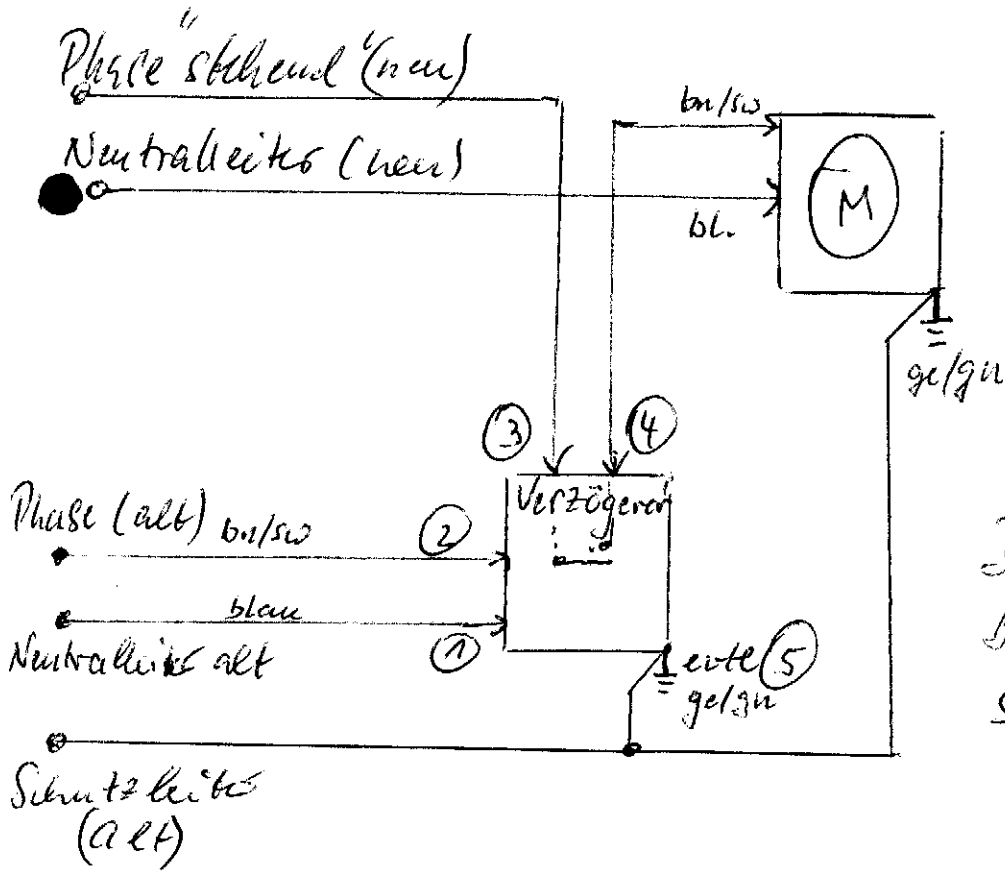 Phase "stehend" (neu)
Neutralleiter (neu)
bn/sw
bl.
M
ge/gn
3
4
Verzögerer
Phase (alt) bn/sw
2
blau
1
Neutralleiter alt
evtl 5
ge/gn
Schutzleiter
(alt)